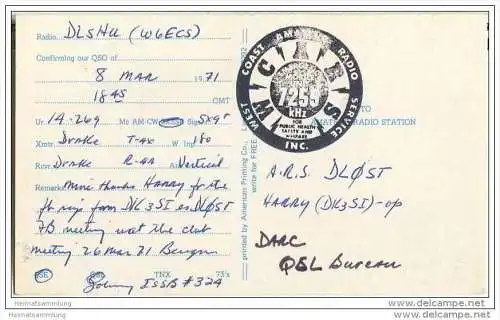 Radio DL5HU (W6ECS)
Confirming our QSO of
8 MAR 1971
1845 GMT
Ur 14.269 Mc AM-CW-SSB Sigs 5x9+
Xmtr Drake T-4X W Inp 180
Rcvr Drake R-4A Vertical
Remarks Mni thanks HARRY for the
fb rig from DK3SI es DLØST
7B meeting wat the club
meeting 26 Mar 71
PSE QSL TNX 73's
Johnny ISSB #324
printed by American Printing Co.,
write for FREE
WEST COAST AMATEUR RADIO SERVICE INC.
7255
kHz
FOR
PUBLIC HEALTH
SAFETY AND
WELFARE
TO
AMATEUR RADIO STATION
A.R.S. DLØST
HARRY (DK3SI)-op
DARC
QSL Bureau
Heimatsammlung
Heimatsammlung.com